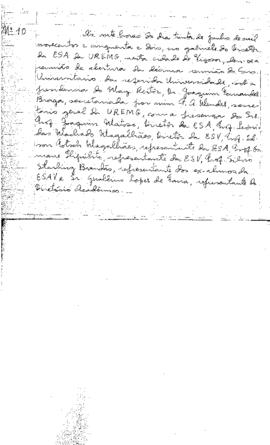 Nº 10
Às sete horas do dia trinta de junho de mil
novecentos e cinquenta e dois, no gabinete do Diretor
da ESA da UREMG, nesta cidade de Viçosa, deu-se a
reunião de abertura da décima reunião do Conselho
Universitário da referida Universidade, sob a
presidência do Magº Reitor, Dr. Joaquim Fernandes
Braga, secretariada por mim, secre-
tário geral da UREMG, com a presença do Sr.
Prof. Joaquim Mattoso, Diretor da ESA, Prof. Leoni-
das Machado Magalhães, Diretor da ESV, Prof. Ed-
son Potsch Magalhães, representante da ESA, Prof.
Hipólito, representante da ESV, Prof. Silvio
Starling Brandão, representante dos ex-alunos da
ESAV e Sr. Gualterio Lopes de Faria, representante do
Diretório Acadêmico.